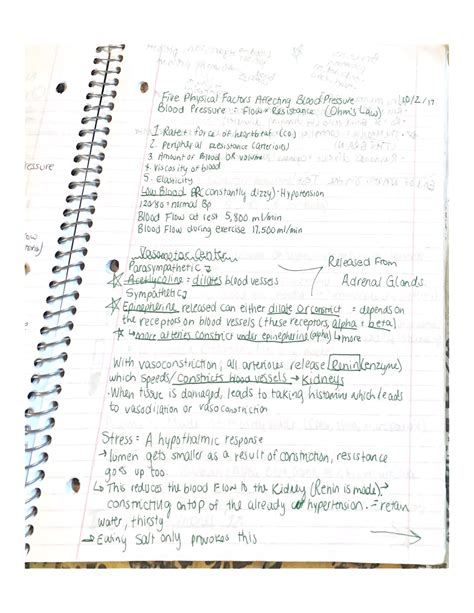 Five Physical Factors Affecting Blood Pressure 10/2/17
Blood Pressure = Flow x Resistance (Ohm's Law)
1. Rate + force of heartbeat (CO)
2. Peripheral resistance (arterioles)
3. Amount of Blood or volume
4. Viscosity of blood
5. Elasticity
Low Blood PR (constantly dizzy) - Hypotension
120/80 = normal Bp
Blood Flow at rest 5,800 ml/min
Blood Flow during exercise 17,500 ml/min
Vasomotor Center
Parasympathetic
Released From
Acetlycoline = dilates blood vessels
Adrenal Glands
Sympathetic
Epinepherine released can either dilate or constrict = depends on
the receptors on blood vessels (these receptors, alpha + beta)
more arteries constrict under epinepherine (alpha) more
With vasoconstriction; all arterioles release Renin (enzyme)
which speeds/constricts blood vessels → Kidneys
- When tissue is damaged, leads to taking histamine which leads
to vasodilation or vasoconstriction
Stress = A hypothalmic response
→ lumen gets smaller as a result of constriction, resistance
goes up too
↳ This reduces the blood flow to the kidney (Renin is made) →
constricting on top of the already hypertension. = retain
water, thirsty
→ Eating Salt only provokes this
essure